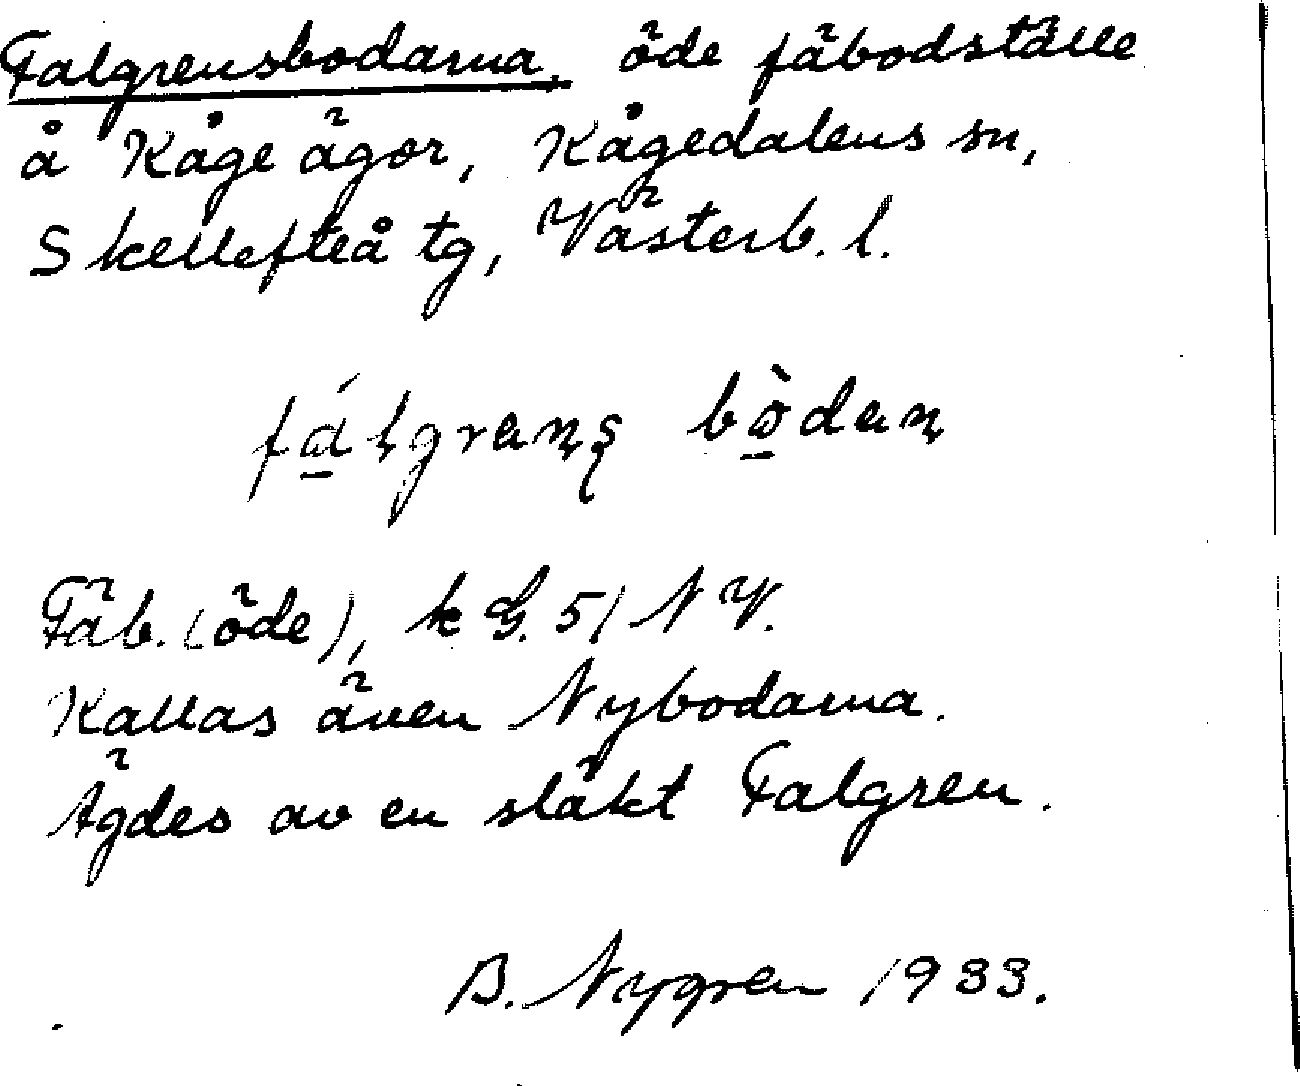 Falgrensbodarna, öde fäbodställe
å Kåge ägor, Kågedalens sn,
Skellefteå tg, Västerb. l.
fálgrens bòdan
Fäb. (öde), k G. 51 NV.
Kallas även Nybodarna.
Ägdes av en släkt Falgren.
B. Nygren 1933.